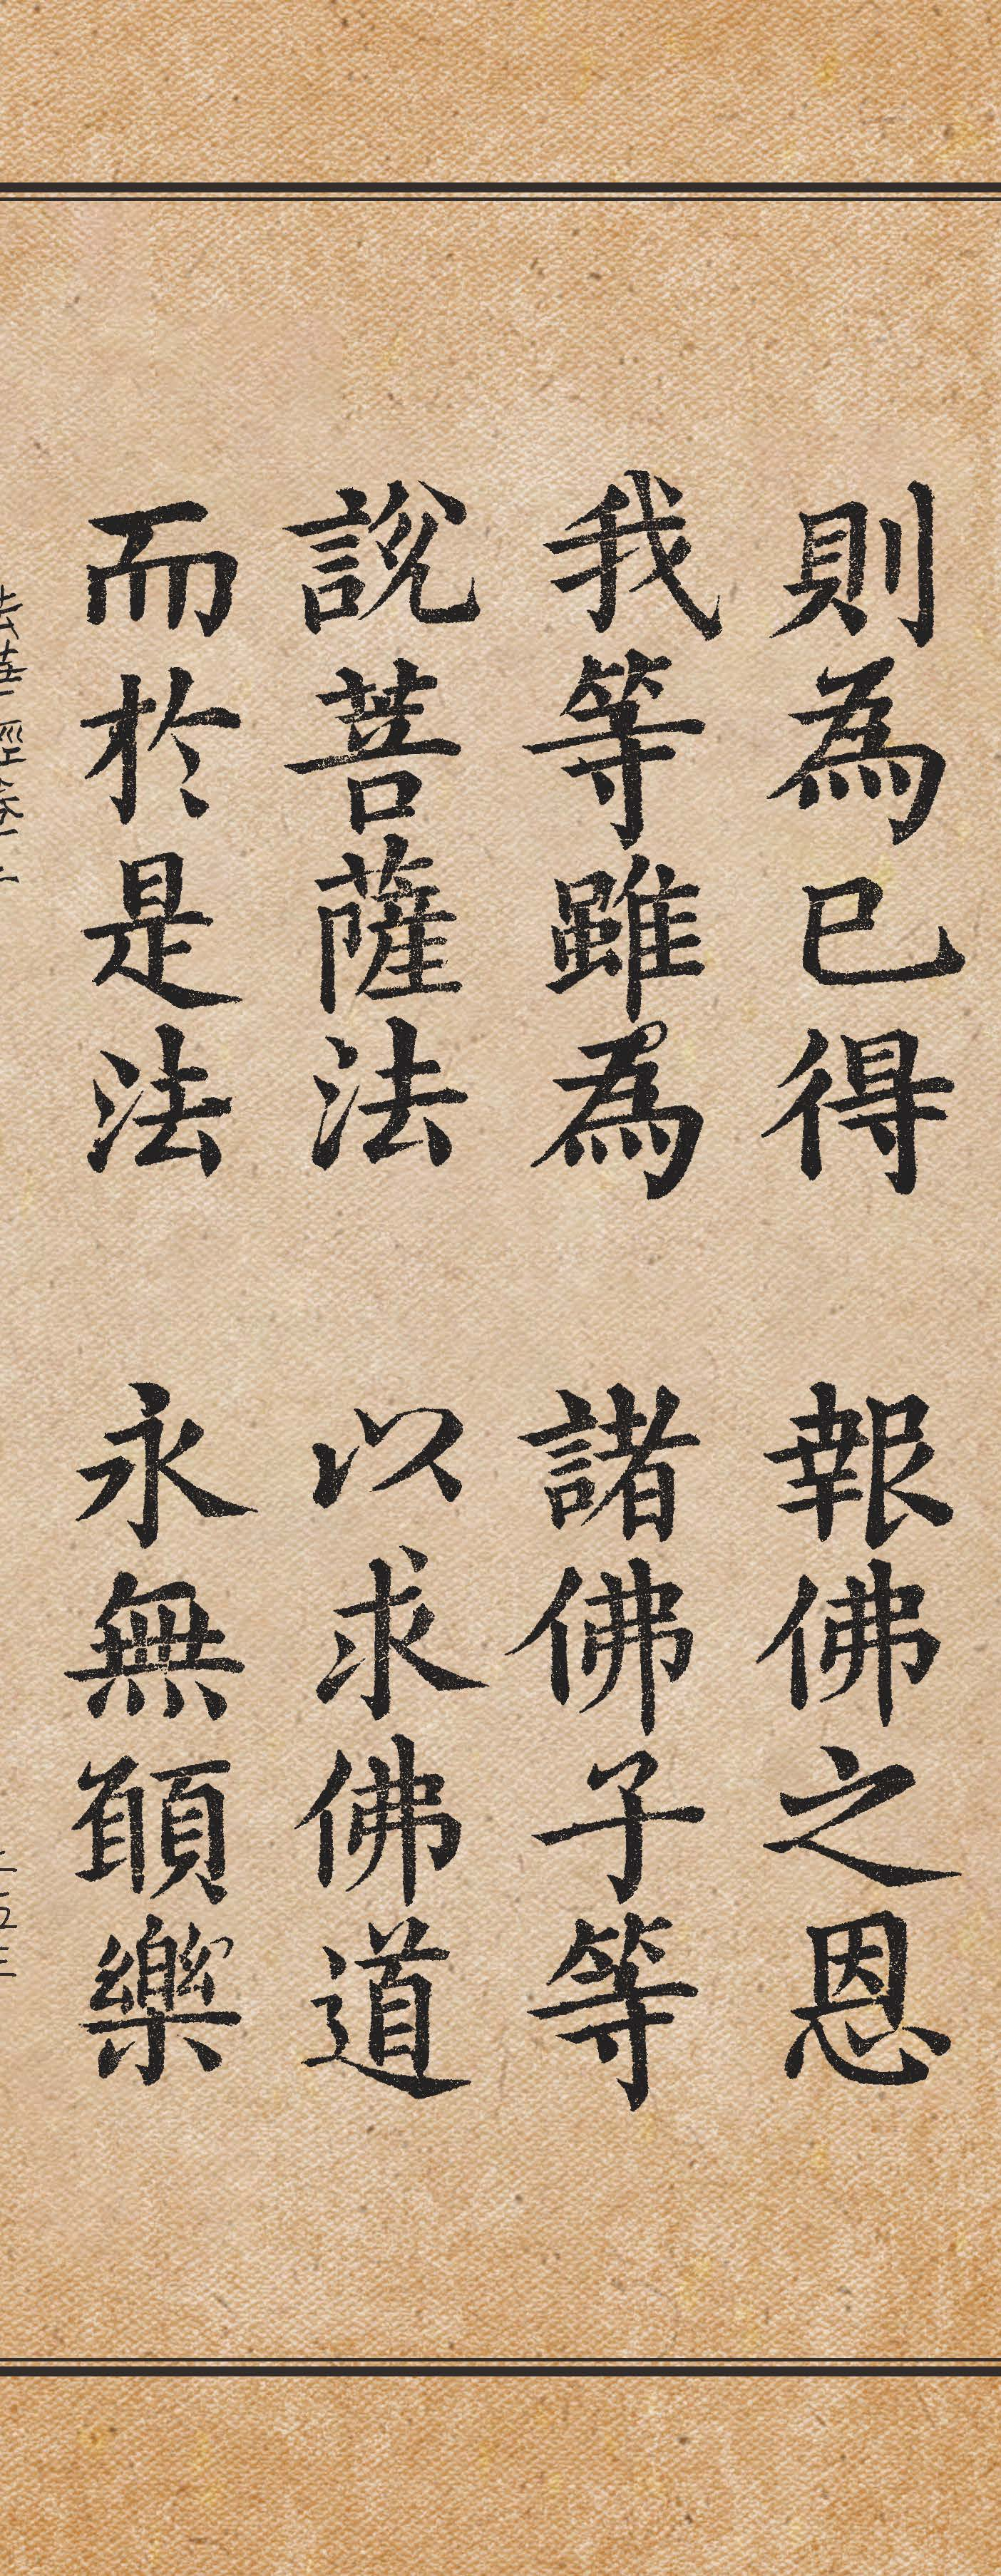 則為已得 報佛之恩
我等雖為 諸佛子等
說菩薩法 以求佛道
而於是法 永無願樂